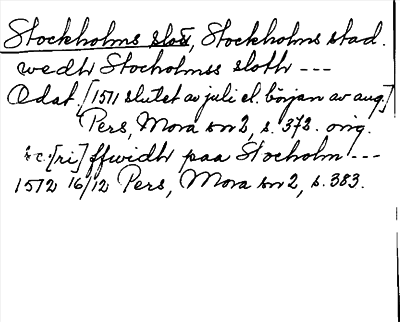 Stockholms slott, Stockholms stad.
wedh Stocholmss sloth ---
Odat. [1571 slutet av juli el. början av aug.]
Pers, Mora sn 2, s. 372. orig.
sc. [ri] ffwidh paa Stocholm ---
1572 16/12 Pers, Mora sn 2, s. 383.